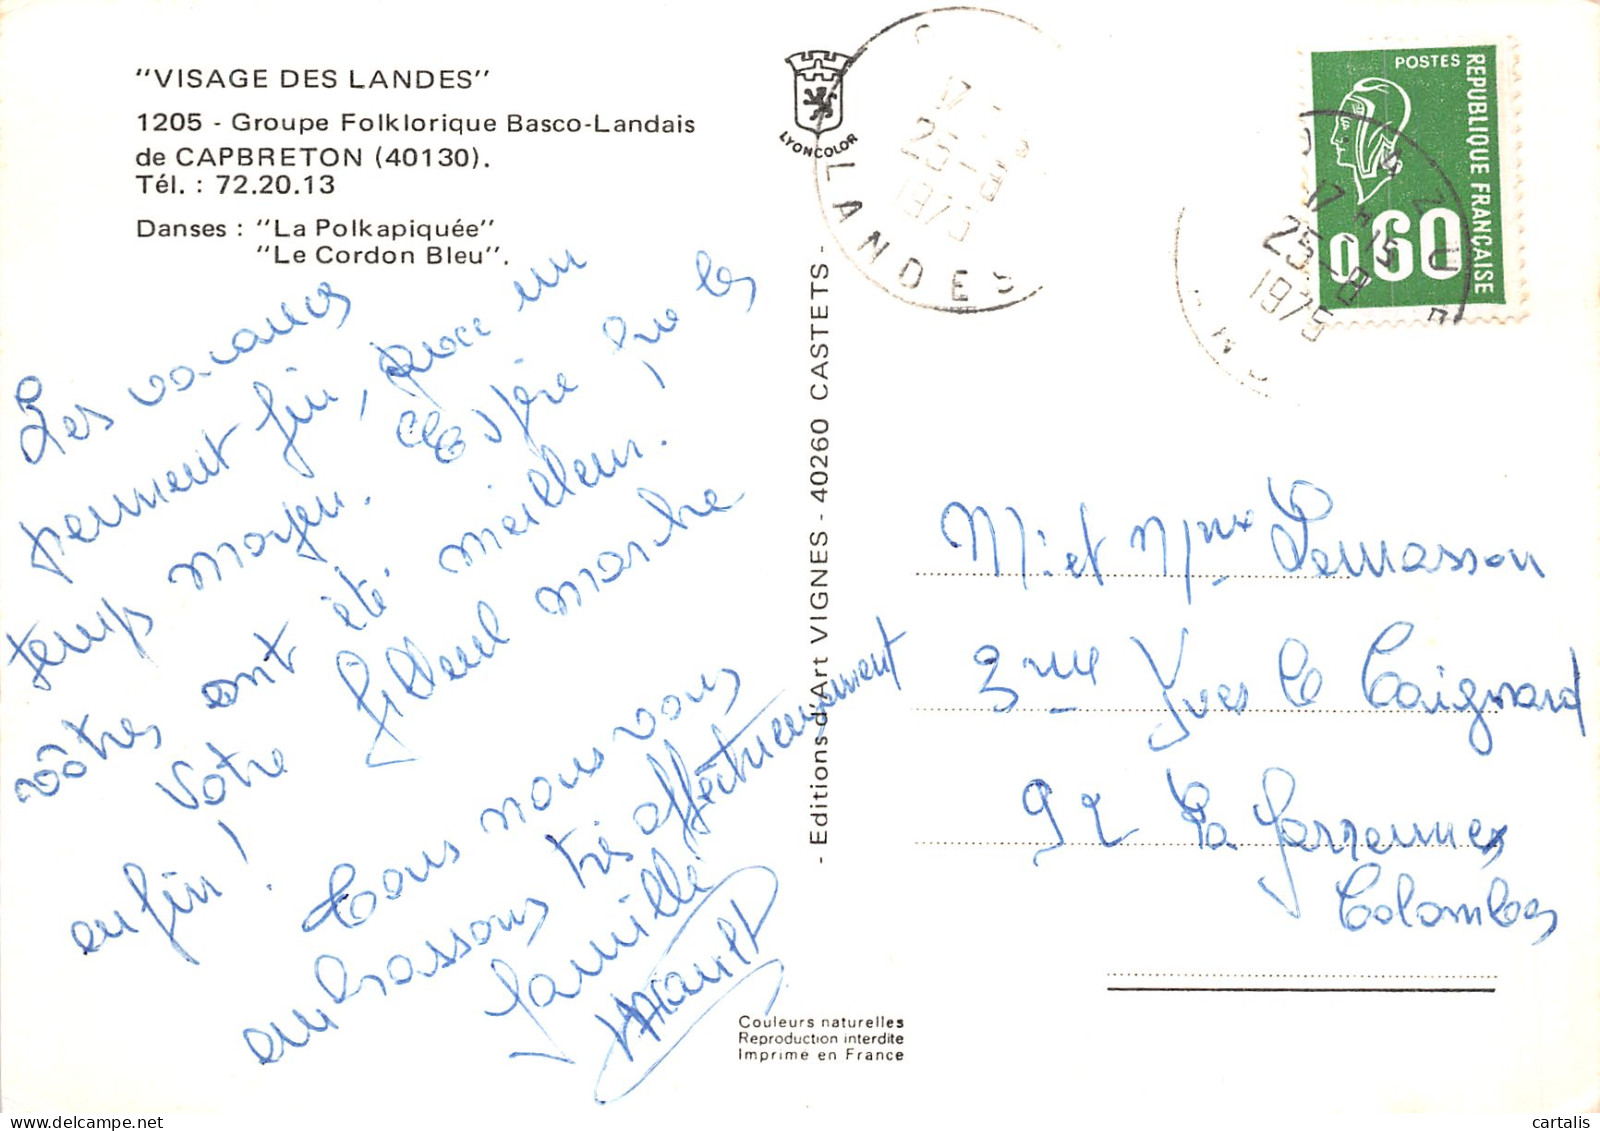 "VISAGE DES LANDES"
1205 - Groupe Folklorique Basco-Landais
de CAPBRETON (40130).
Tél. : 72.20.13
Danses : "La Polkapiquée"
"Le Cordon Bleu".
LYONCOLOR
LANDES
17
25-8
1975
POSTES
REPUBLIQUE FRANÇAISE
0,60
17 H 15
25-8
1975
Les vacances
prennent fin, avec un
temps moyen. Espère que les
vôtres ont été meilleur.
Votre filleul marche
enfin !
Tous nous vous
embrassons très affectueusement
famille
- Editions d'Art VIGNES - 40260 CASTETS -
Mr et Mme Lemasson
3 rue Yves le Coignard
92 La Garennes
Colombes
Couleurs naturelles
Reproduction interdite
Imprimé en France
cartalis